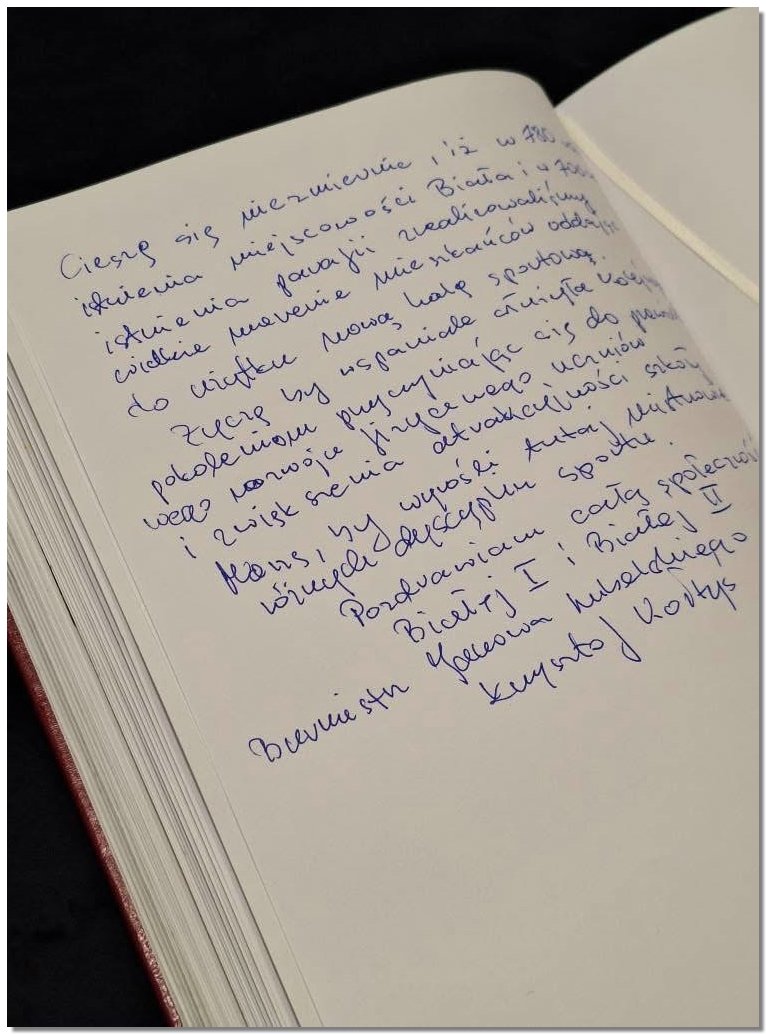 Cieszę się niezmiernie, iż w 780
istnienia miejscowości Biała i w 700
istnienia parafii zrealizowaliśmy
wielkie marzenie mieszkańców oddając
do użytku nową halę sportową.
Życzę by wspaniale służyła
pokoleniom przyczyniając się do
wego rozwoju fizycznego uczniów
i zwiększenia atrakcyjności szkoły
Marzę, by wyrośli tutaj mistrzowie
różnych dyscyplin sportu.
Pozdrawiam całą społeczność
Białej I i Białej II
Burmistrz Janowa Lubelskiego
Krzysztof Kołtyś